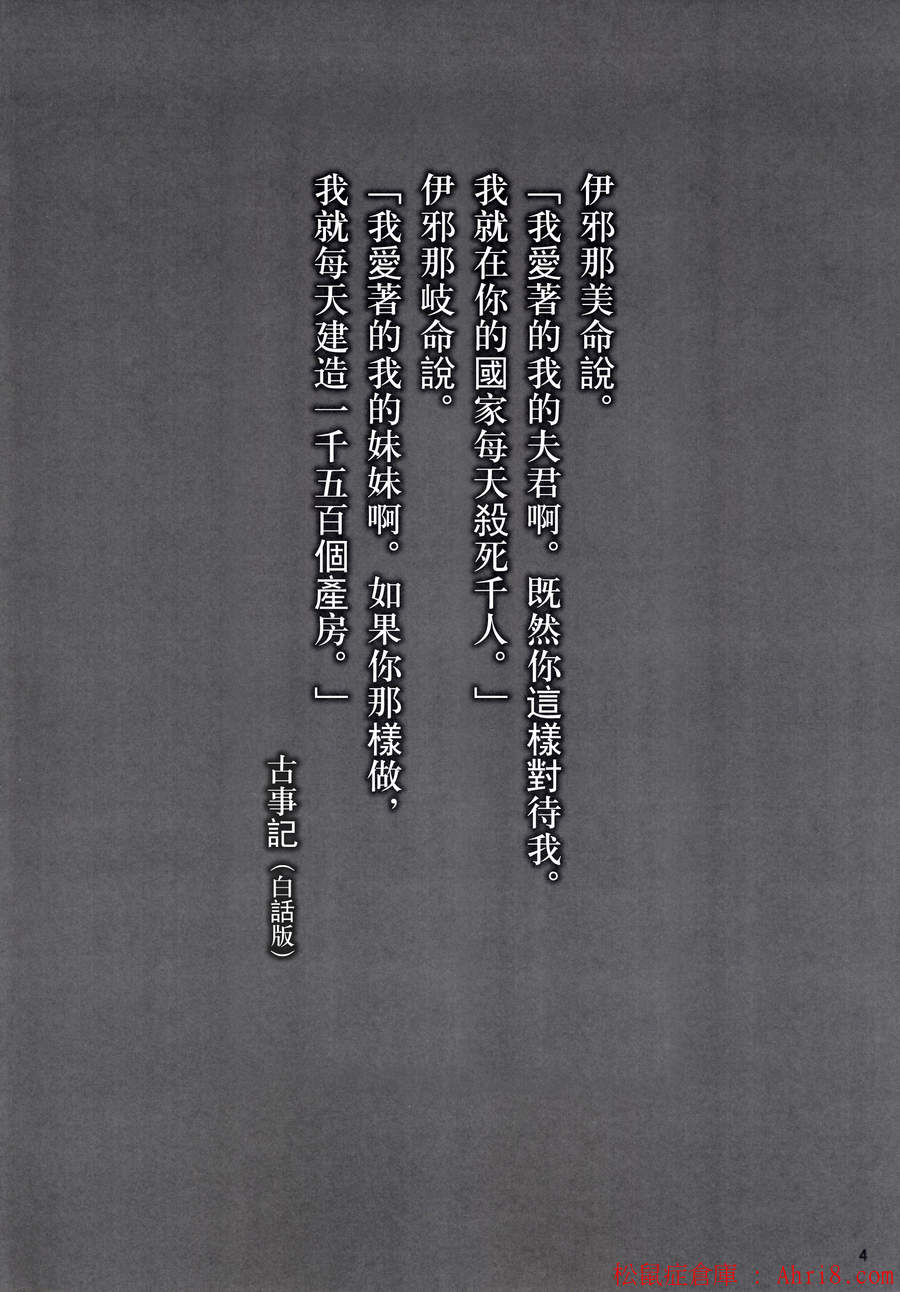 伊邪那美命說。
「我愛著的我的夫君啊。既然你這樣對待我。
我就在你的國家每天殺死千人。」
伊邪那岐命說。
「我愛著的我的妹妹啊。如果你那樣做，
我就每天建造一千五百個產房。」
古事記（白話版）
4
松鼠症倉庫 : Ahri8.com